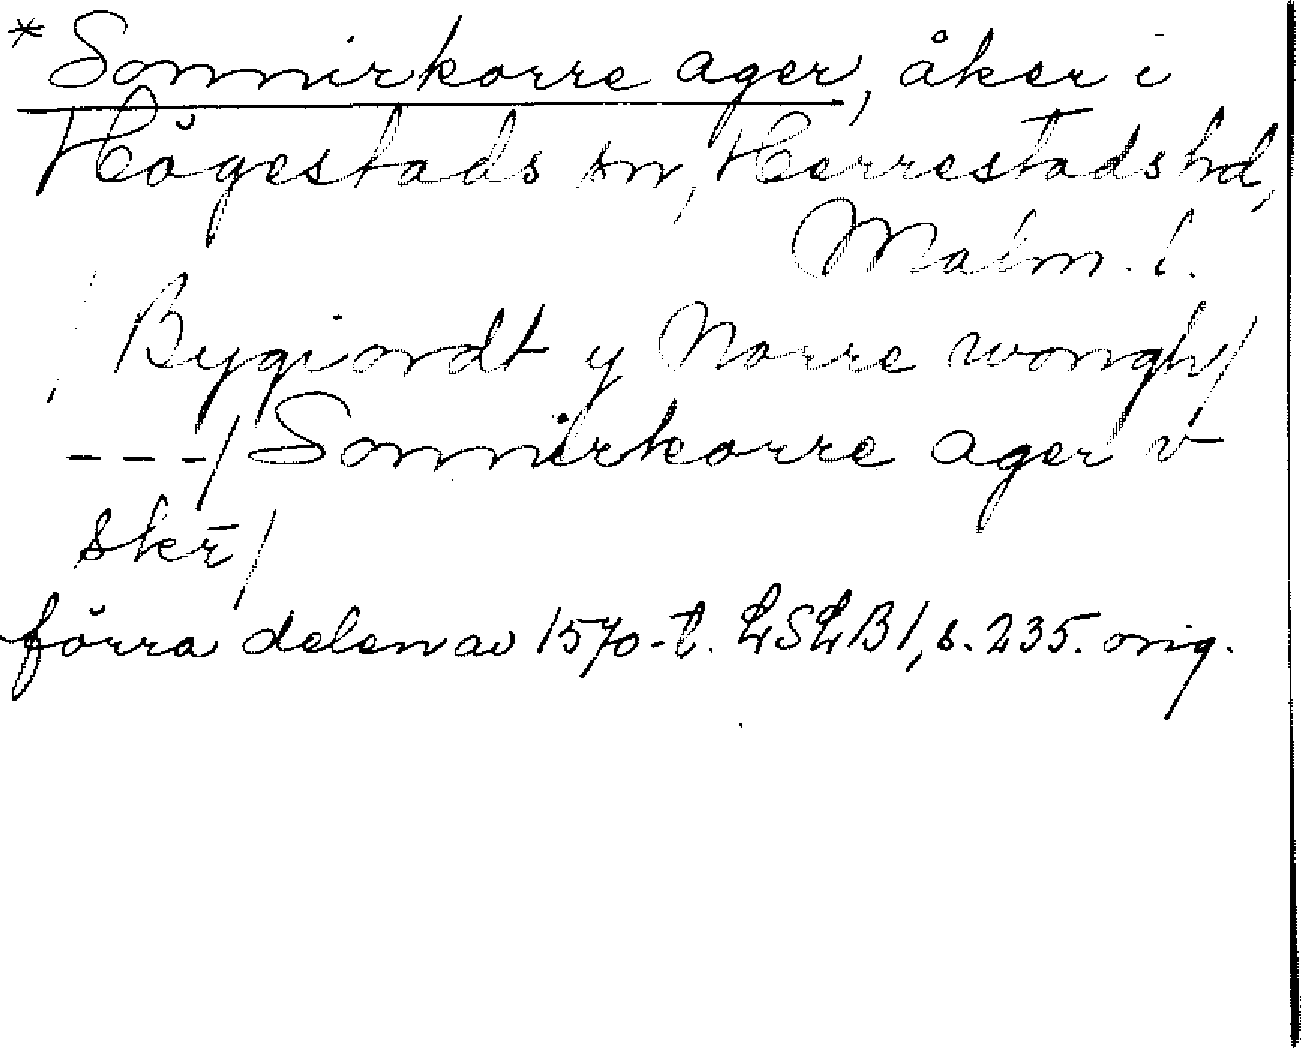 *Sonnirkorre ager, åker i
Högestads sn, Herrestads hd,
Malm. l.
/ Bygiordt y Norre wongh/
---/ Sonnirkorre ager v
skē/
förra delen av 1570-t. LSLB 1, s. 235. orig.